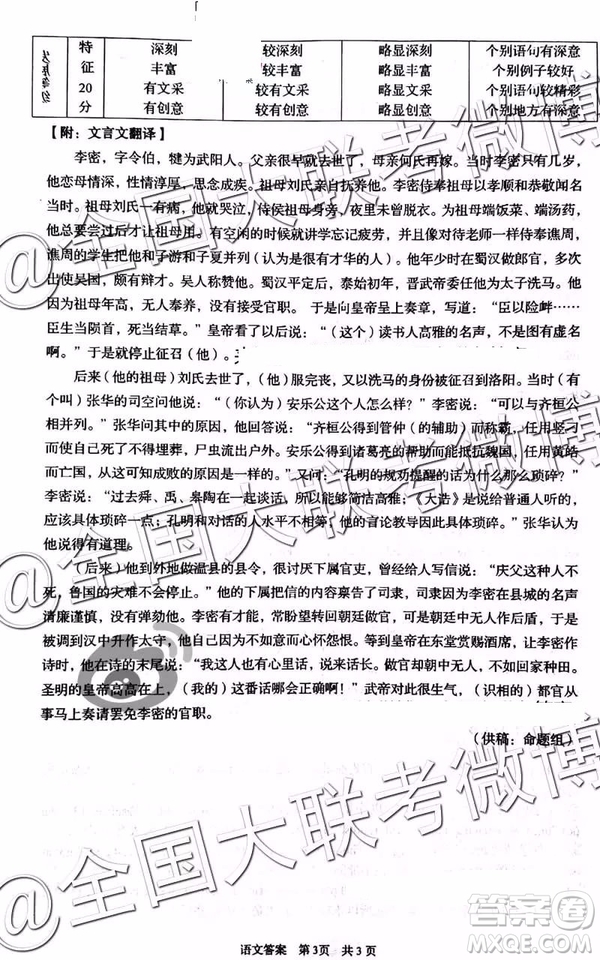 特
征
20
分
深刻 较深刻 略显深刻 个别语句有深意
丰富 较丰富 略显丰富 个别例子较好
有文采 较有文采 略显文采 个别语句较精彩
有创意 较有创意 略显创意 个别地方有深意
【附：文言文翻译】
李密，字令伯，犍为武阳人。父亲很早就去世了，母亲何氏再嫁。当时李密只有几岁，
他恋母情深，性情淳厚，思念成疾。祖母刘氏亲自抚养他。李密侍奉祖母以孝顺和恭敬闻名
当时。祖母刘氏一有病，他就哭泣，侍侯祖母身旁，夜里未曾脱衣。为祖母端饭菜、端汤药，
他总要尝过后才让祖母用。有空闲的时候就讲学忘记疲劳，并以对待老师一样侍奉谯周，
谯周的学生们把他和子游和子夏并列（认为是很有才华的人）。他年少时在蜀汉做郎官，多次
出使吴国，颇有辩才。吴人称赞他。蜀汉平定后，泰始初年，晋武帝委任他为太子洗马。他
因为祖母年高，无人奉养，没有接受官职。 于是向皇帝上奏章，写道：“臣以险衅……
臣生当陨首，死当结草。”皇帝看了以后说：“（这个）读书人高雅的名声，不是图有虚名
啊。”于是就停止征召（他）。
后来（他的祖母）刘氏去世了，（他）服完丧，又以洗马的身份被征召到洛阳。当时（有
个叫）张华的司空问他说：“（你认为）安乐公这个人怎么样？”李密说：“可以与齐桓公
相并列。”张华问其中的原因，他回答说：“齐桓公得到管仲（的辅助）而称霸，任用竖刁
而自己死了不得埋葬，尸虫流出户外。安乐公得到诸葛亮的帮助而能抵抗魏国，任用黄皓
而亡国，从此可知成败的原因是一样的。”又问：“孔明的规劝提醒的话为什么那么琐碎？”
李密说：“过去舜、禹、皋陶在一起谈话，所以能够简洁高雅；《大诰》是说给普通人听的，
应该具体琐碎一点；孔明和对话的人水平不相等，他的言论教导因此具体琐碎。”张华认为
他说得有道理。
（后来）他到外地做温县的县令，很讨厌下属官吏，曾经给人写信说：“庆父这种人不
死，鲁国的灾难不会停止。”他的下属把信的内容禀告了司隶，司隶因为李密在县城的名声
清廉谨慎，没有弹劾他。李密有才能，常盼望转回朝廷做官，可是朝廷中无人作后盾，于是
被调到汉中升作太守，他自己因失去地位而心怀怨恨。等到皇帝在东堂赏赐酒席，让李密作
诗时，他在诗的末尾说：“我这人也有心里话，说来有原因。做官朝中无人，不如回家种田。
圣明的皇帝高高在上，（我的）这番话哪会正确啊！”武帝对此很生气，（识相的）都官从
事马上奏请罢免李密的官职。
（供稿：命题组）
语文答案 第3页 共3页
@全国大联考微博
@全国大联考微博
@全国大联考微博
答案圈
MXQE.COM